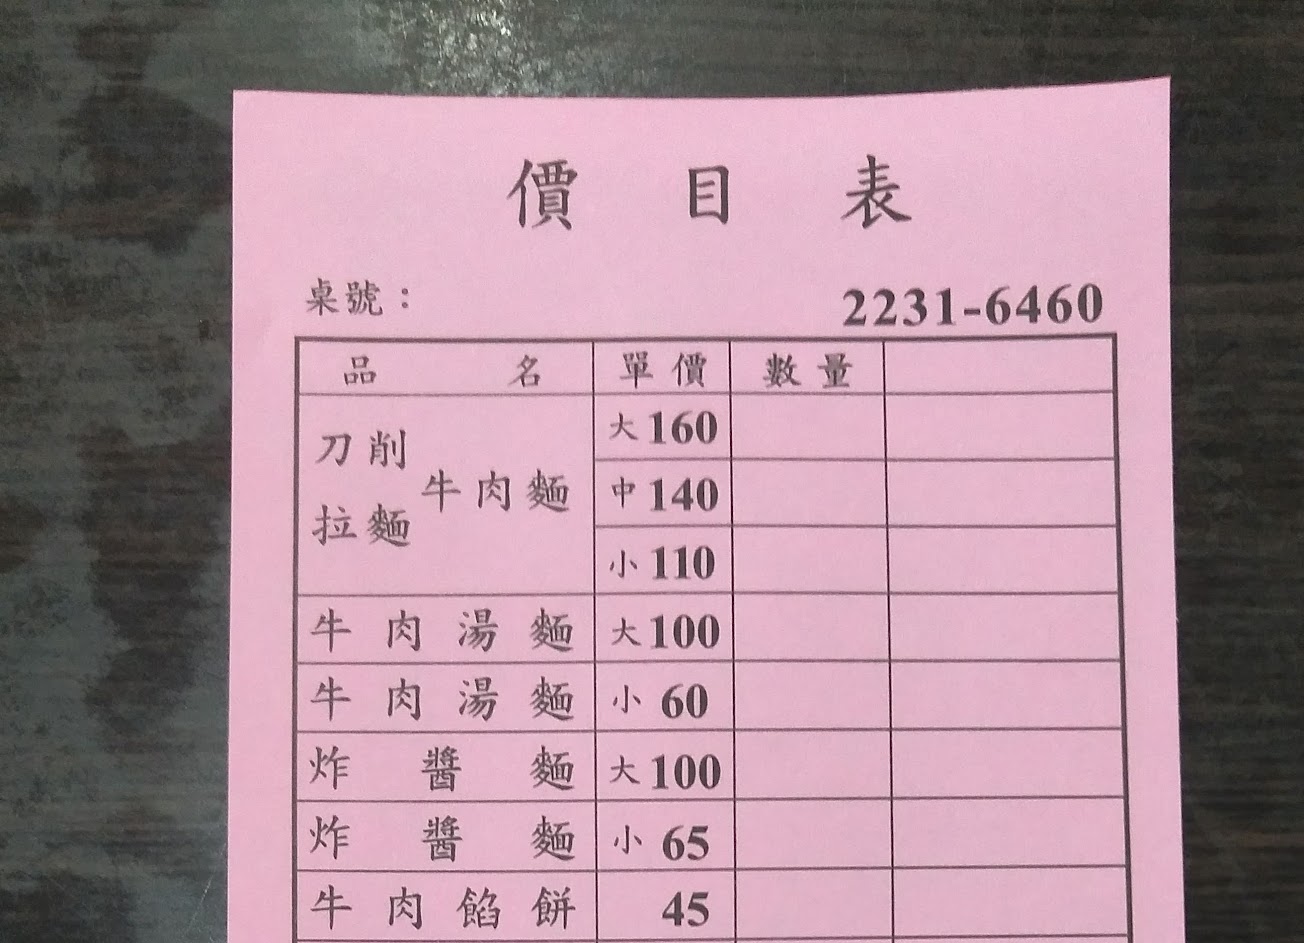 價目表
桌號：
2231-6460
品名 單價 數量
刀削
拉麵
牛肉麵
大 160
中 140
小 110
牛肉湯麵 大 100
牛肉湯麵 小 60
炸醬麵 大 100
炸醬麵 小 65
牛肉餡餅 45